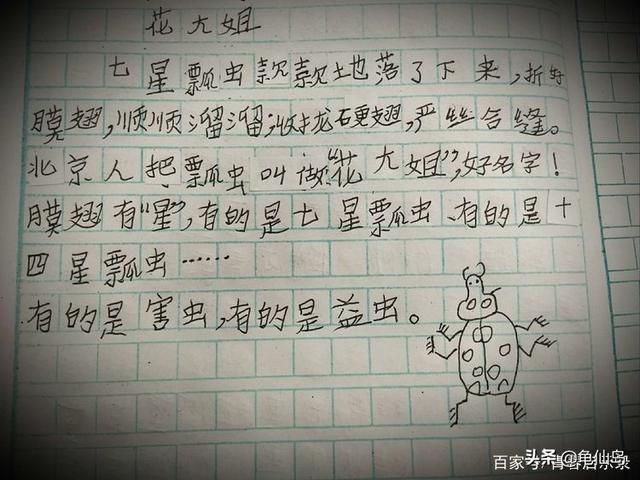 花大姐
七星瓢虫款款地落了下来,折好
膜翅,顺顺溜溜;收拢硬翅,严丝合缝。
北京人把瓢虫叫做“花大姐”,好名字!
膜翅有“星”,有的是七星瓢虫、有的是十
四星瓢虫……
有的是害虫,有的是益虫。
头条@龟仙岛
百家号/青春启示录